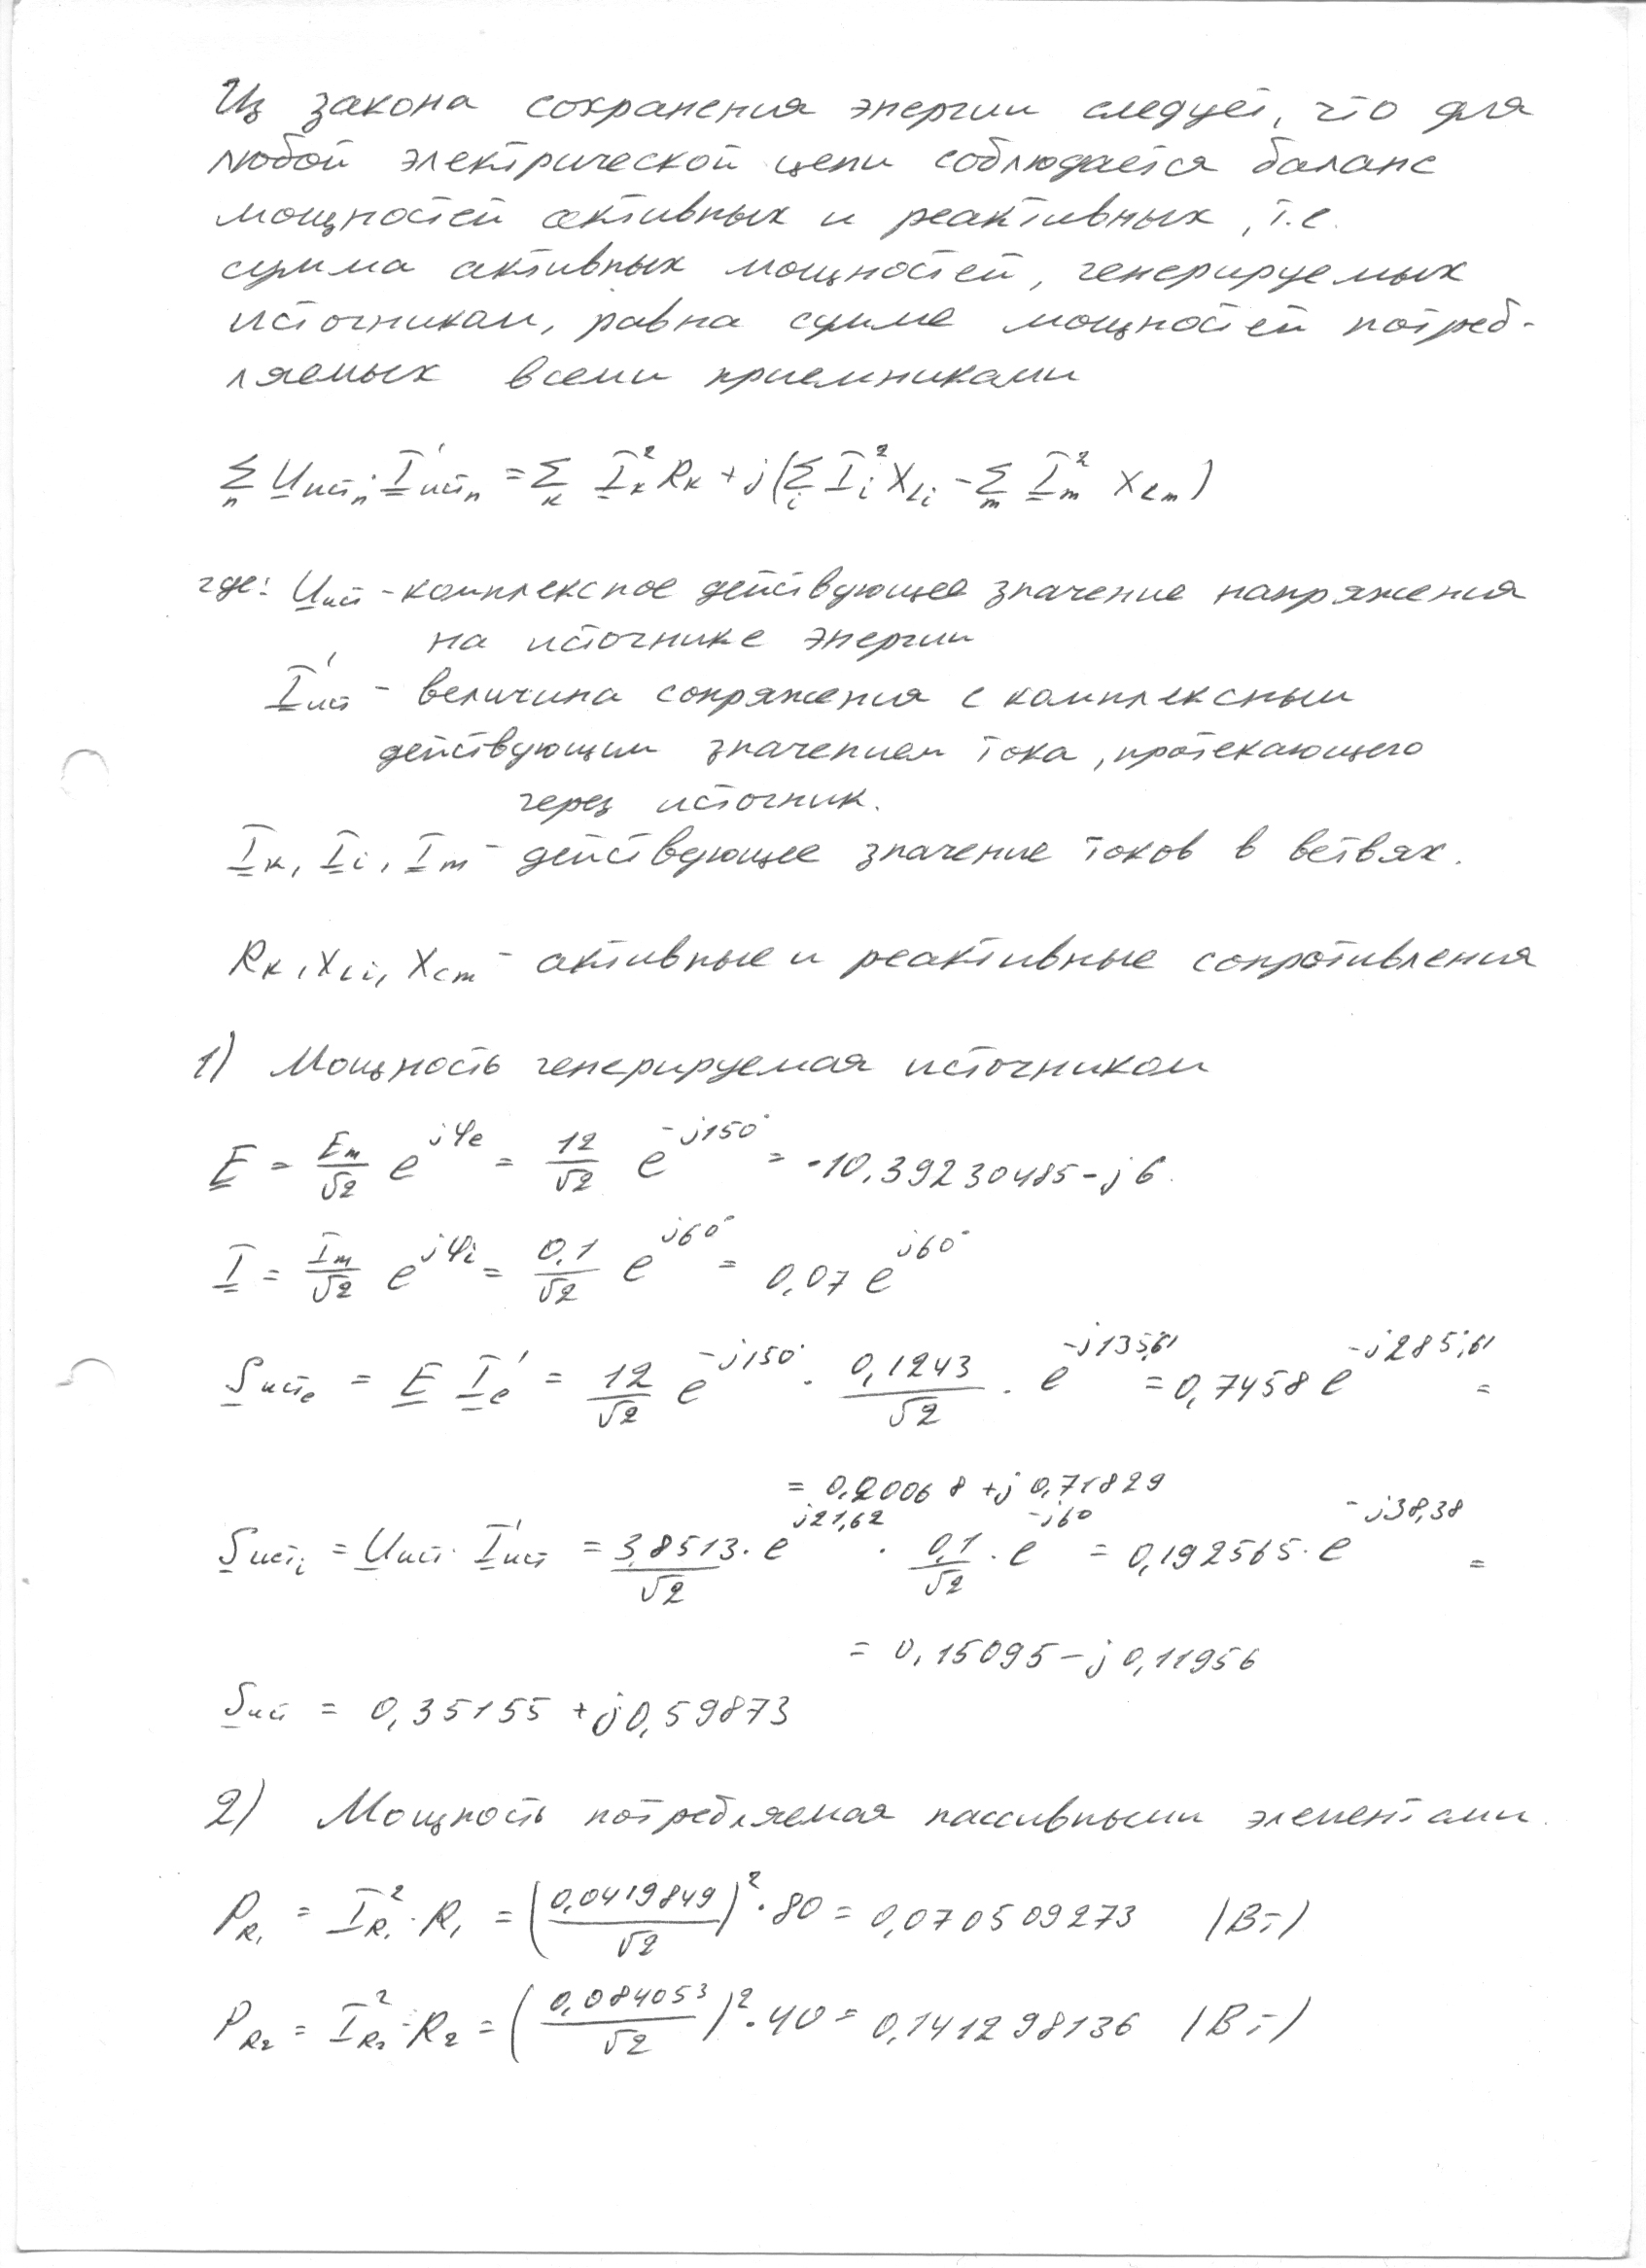 Из закона сохранения энергии следует, что для
любой электрической цепи соблюдается баланс
мощностей активных и реактивных, т.е.
сумма активных мощностей, генерируемых
источником, равна сумме мощностей потреб-
ляемых всеми приемниками
∑ₙ U̲истₙ · I̲'истₙ = ∑ₖ I̲ₖ² Rₖ + j(∑ᵢ I̲ᵢ² X_Li - ∑ₘ I̲ₘ² X_Cm)
где: U̲ист - комплексное действующее значение напряжения
на источнике энергии
I̲'ист - величина сопряжения с комплексным
действующим значением тока, протекающего
через источник.
I̲ₖ, I̲ᵢ, I̲ₘ - действующее значение токов в ветвях.
Rₖ, X_Li, X_Cm - активные и реактивные сопротивления
1) Мощность генерируемая источником
E̲ = Em/√2 e^(jφe) = 12/√2 e^(-j150°) = -10,39230485 - j6.
I̲ = Im/√2 e^(jφi) = 0,1/√2 e^(j60°) = 0,07 e^(j60°)
S̲истe = E̲ I̲'e = 12/√2 e^(-j150°) · 0,1243/√2 · e^(-j135,61) = 0,7458 e^(-j285,61) =
= 0,20068 + j0,71829
S̲истi = U̲ист · I̲'ист = 3,8513/√2 · e^(j21,62) · 0,1/√2 · e^(-j60) = 0,192565 · e^(-j38,38) =
= 0,15095 - j0,11956
S̲ист = 0,35155 + j0,59873
2) Мощность потребляемая пассивными элементами.
P_R1 = I̲²_R1 · R₁ = (0,0419849/√2)² · 80 = 0,070509273 (Вт)
P_R2 = I̲²_R2 · R₂ = (0,084053/√2)² · 40 = 0,141298136 (Вт)